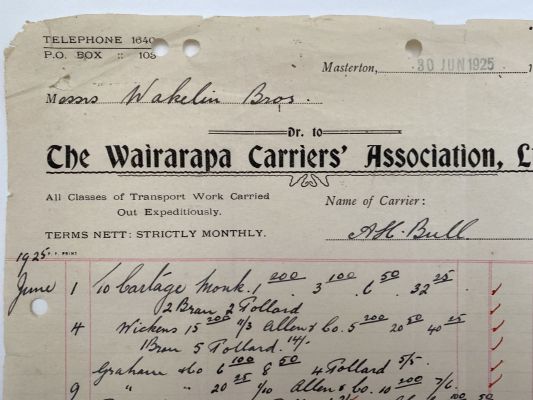 TELEPHONE 1640
P.O. BOX :: 105
Masterton, 30 JUN 1925
Messrs Wakelin Bros.
Dr. to
The Wairarapa Carriers' Association, L
All Classes of Transport Work Carried
Out Expeditiously.
Name of Carrier:
TERMS NETT: STRICTLY MONTHLY.
A.H. Bull
1925
June 1 To Cartage Monk. 1 200 3 100 6 50 32 25
2 Bran 2 Pollard
4 Wickens 15 200 11/3 Allen & Co. 5 200 20 50 40 25
1 Bran 5 Pollard. 14/-
Graham & Co 6 100 8 50 4 Pollard 5/5
9 " " 20 25 1/10 Allen & Co. 10 200 7/6